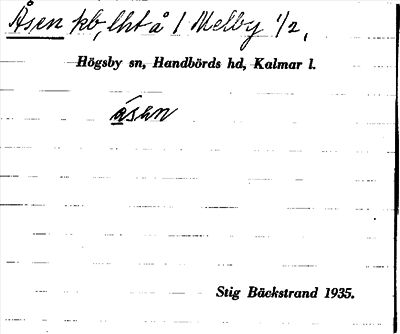 Åsen kb, lht å 1 Melby 1/2,
Högsby sn, Handbörds hd, Kalmar l.
åsen
Stig Bäckstrand 1935.